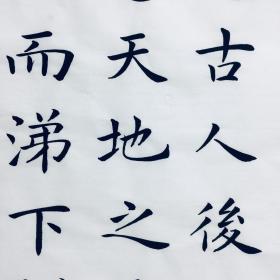 古人後
天地之
而涕下